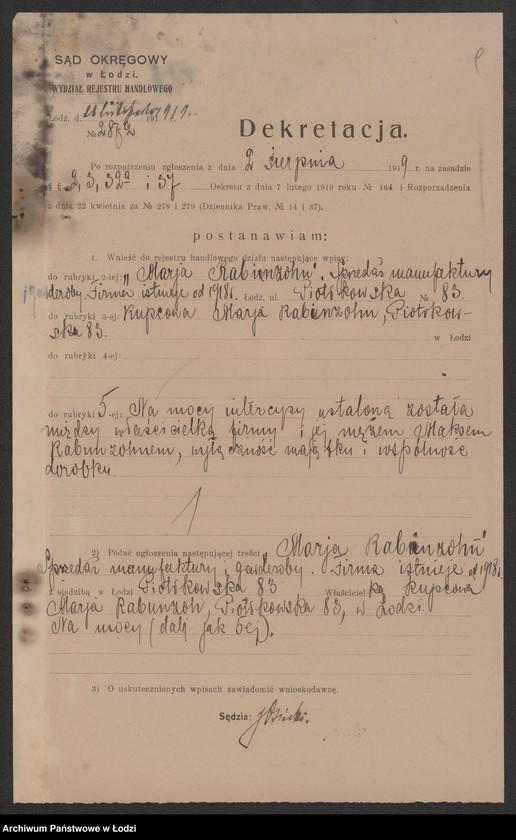 SĄD OKRĘGOWY
w Łodzi,
WYDZIAŁ REJESTRU HANDLOWEGO
Łódź, d. 191
№ 2872
Dekretacja.
Po rozpatrzeniu zgłoszenia z dnia 2 sierpnia 1919 r. na zasadzie
§ § 2, 3, 32a i 37 Dekretu z dnia 7 lutego 1919 roku № 164 i Rozporządzenia
z dnia 22 kwietnia za № 278 i 279 (Dziennika Praw. № 14 i 37),
postanawiam:
1. Wnieść do rejestru handlowego działu następujące wpisy:
do rubryki 2-ej: „Marja Rabinzohn". Sprzedaż manufaktury
i garderoby. Firma istnieje od 1918 r. Łódź, ul. Piotrkowska № 83.
do rubryki 3-ej: Kupcowa Marja Rabinzohn, Piotrkow-
ska 83. w Łodzi
do rubryki 4-ej:
do rubryki 5-ej: Na mocy intercyzy ustaloną została
między właścicielką firmy i jej mężem Maksem
Rabinzohnem, wyłączność majątku i wspólność
dorobku.
2) Podać ogłoszenia następującej treści „Marja Rabinzohn"
Sprzedaż manufaktury i garderoby. Firma istnieje od 1918 r.
z siedzibą w Łodzi Piotrkowska 83 Właścicielką kupcowa
Marja Rabinzoh, Piotrkowska 83, w Łodzi.
Na mocy (dalej jak 5ej).
3) O uskutecznionych wpisach zawiadomić wnioskodawcę.
Sędzia:
Archiwum Państwowe w Łodzi